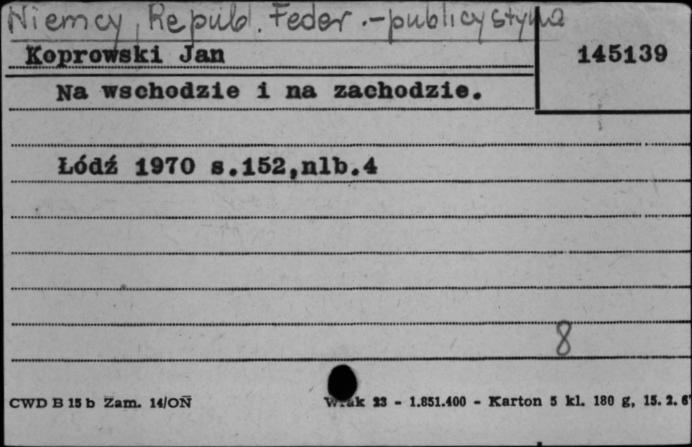 Niemcy, Republ. Feder. - publicystyka
Koprowski Jan 145139
Na wschodzie i na zachodzie.
Łódź 1970 s.152,nlb.4
8
CWD B 15 b Zam. 14/OŃ 23 - 1.851.400 - Karton 5 kl. 180 g, 15. 2. 6